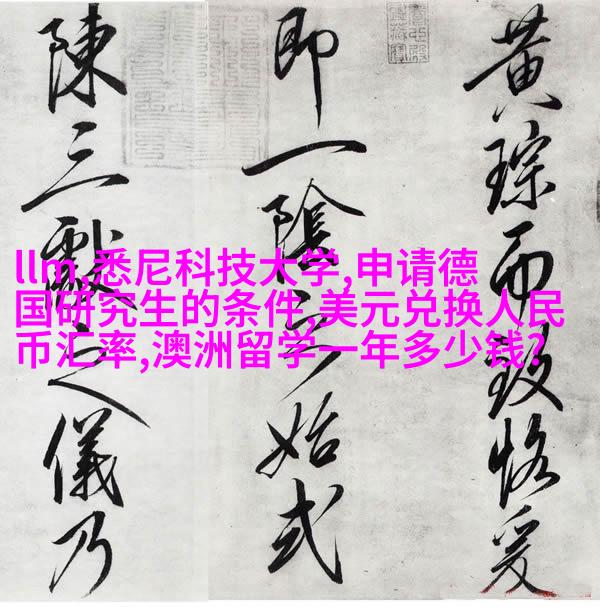 黄琮而致恪爰
即一陰之始式
陳三獻之儀乃
llm,悉尼科技大学,申请德
国研究生的条件,美元兑换人民
币汇率,澳洲留学一年多少钱?